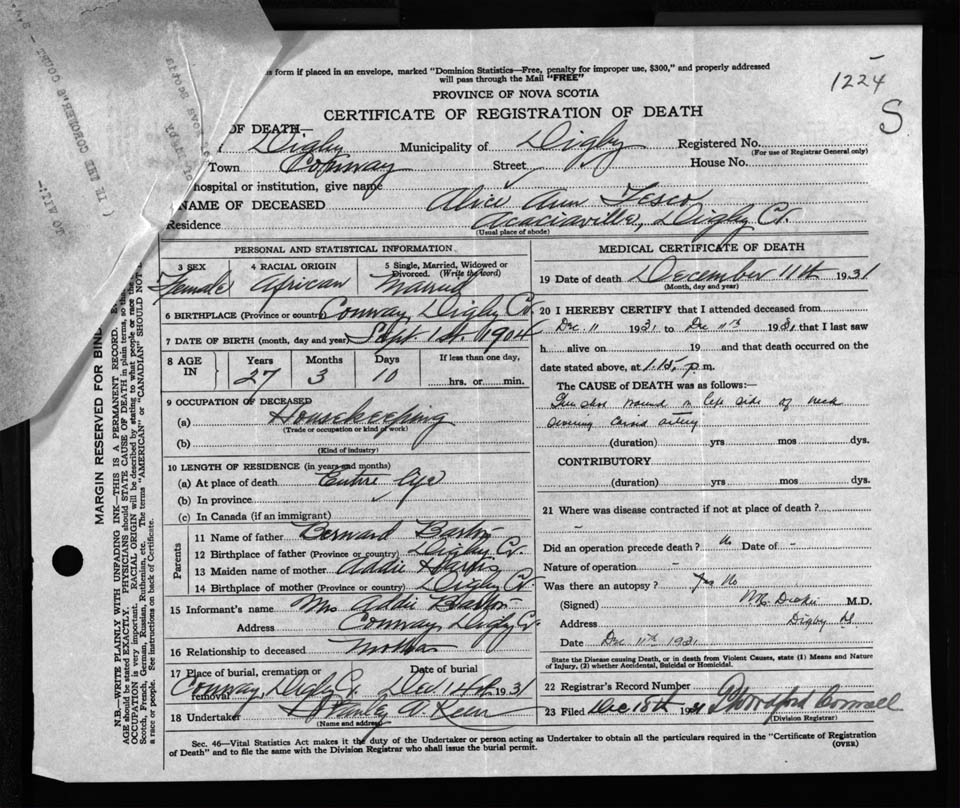 s form if placed in an envelope, marked "Dominion Statistics—Free, penalty for improper use, $300," and properly addressed
will pass through the Mail "FREE"
1224
PROVINCE OF NOVA SCOTIA
S
CERTIFICATE OF REGISTRATION OF DEATH
OF DEATH—
Digby Municipality of Digby Registered No.
(For use of Registrar General only)
Town Conway Street House No.
hospital or institution, give name
NAME OF DECEASED Alice Ann
Residence Acaciaville, Digby Co.
(Usual place of abode)
( IN THE CORONER'S COURT
TO WIT:-
PERSONAL AND STATISTICAL INFORMATION
3 SEX 4 RACIAL ORIGIN 5 Single, Married, Widowed or
Divorced. (Write the word)
Female African Married
6 BIRTHPLACE (Province or country) Conway Digby Co.
7 DATE OF BIRTH (month, day and year) Sept. 1st. 1904
8 AGE IN Years Months Days If less than one day,
27 3 10 hrs. or min.
9 OCCUPATION OF DECEASED
(a) Housekeeping
(Trade or occupation or kind of work)
(b)
(Kind of industry)
10 LENGTH OF RESIDENCE (in years and months)
(a) At place of death Entire life
(b) In province
(c) In Canada (if an immigrant)
Parents
11 Name of father Bernard
12 Birthplace of father (Province or country) Digby Co.
13 Maiden name of mother Addie
14 Birthplace of mother (Province or country) Digby Co.
15 Informant's name Mrs Addie
Address Conway Digby Co.
16 Relationship to deceased Mother
17 Place of burial, cremation or removal Date of burial
Conway, Digby Co. Dec 14th 1931
18 Undertaker Stanley A.
(Name and address)
MEDICAL CERTIFICATE OF DEATH
19 Date of death December 11th 1931
(Month, day and year)
20 I HEREBY CERTIFY that I attended deceased from
Dec 11 1931 to Dec 11th 1931 that I last saw
h alive on 19 and that death occurred on the
date stated above, at 1.15, p.m.
The CAUSE of DEATH was as follows:—
Gun shot wound in left side of neck
severing artery
(duration) yrs mos dys.
CONTRIBUTORY
(duration) yrs mos dys.
21 Where was disease contracted if not at place of death ?
Did an operation precede death ? No Date of -
Nature of operation -
Was there an autopsy ? No
(Signed) M.D.
Address Digby
Date Dec 11th 1931
State the Disease causing Death, or in death from Violent Causes, state (1) Means and Nature
of Injury, (2) whether Accidental, Suicidal or Homicidal.
22 Registrar's Record Number
23 Filed Dec 18th 1931
(Division Registrar)
Sec. 46—Vital Statistics Act makes it the duty of the Undertaker or person acting as Undertaker to obtain all the particulars required in the "Certificate of Registration
of Death" and to file the same with the Division Registrar who shall issue the burial permit. (OVER)
MARGIN RESERVED FOR BIND
N.B.—WRITE PLAINLY WITH UNFADING INK—THIS IS A PERMANENT RECORD.
AGE should be stated EXACTLY. PHYSICIANS should STATE CAUSE OF DEATH in plain terms, so
OCCUPATION is very important. RACIAL ORIGIN will be described by stating to what people or race the
Scotch, French, German, Russian, Ruthenian, etc. The terms "AMERICAN" or "CANADIAN" SHOULD NOT
a race or people. See instructions on back of Certificate.